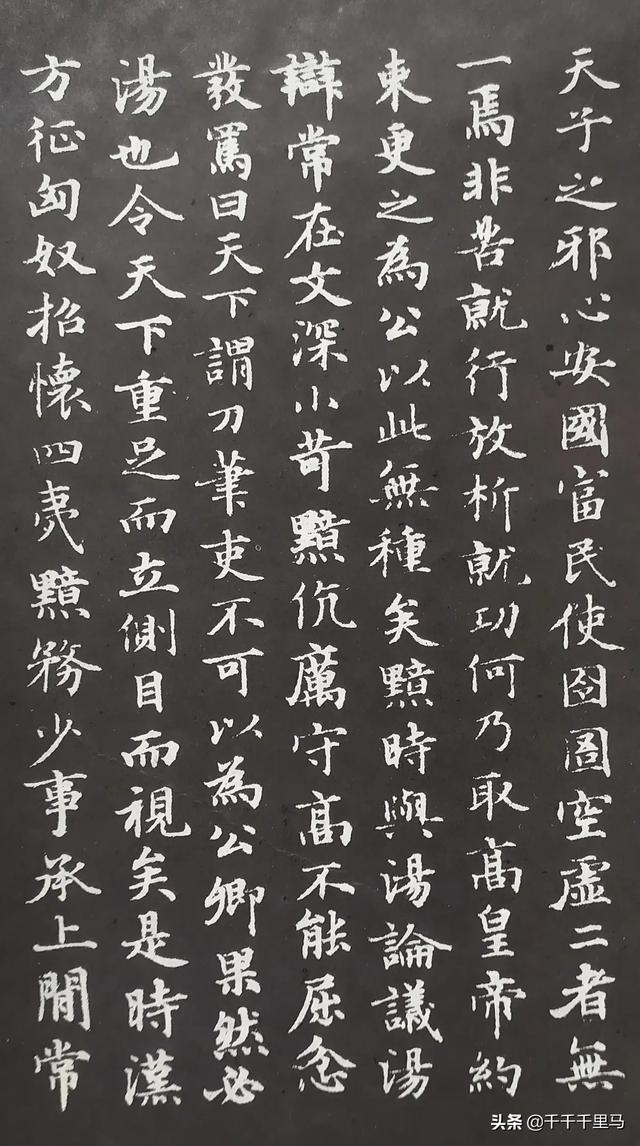 天子之邪心安國富民使囹圄空虛二者無
一焉非苦就行放析就功何乃取高皇帝約
東更之為公以此無種矣黯時與湯論議湯
辯常在文深小苛黯伉厲守高不能屈忿
發罵曰天下謂刀筆吏不可以為公卿果然必
湯也令天下重足而立側目而視矣是時漢
方征匈奴招懷四夷黯務少事承上閒常
头条 @千千千里马